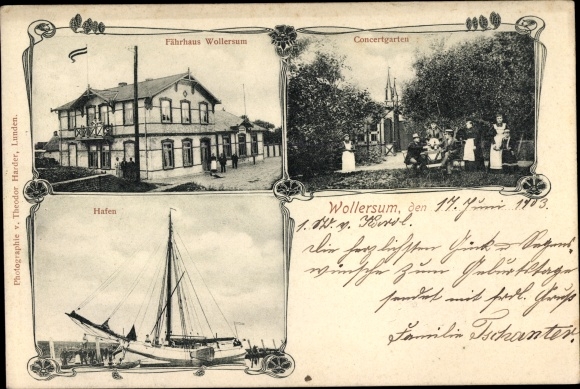 Fährhaus Wollersum
Concertgarten
Photographie v. Theodor Harder, Lunden.
Hafen
Wollersum, den 17. Juni 1903.
Die herzlichsten Glück- u. Segens-
wünsche zum Geburtstage
sendet mit frdl. Gruß
Familie Tschanter.